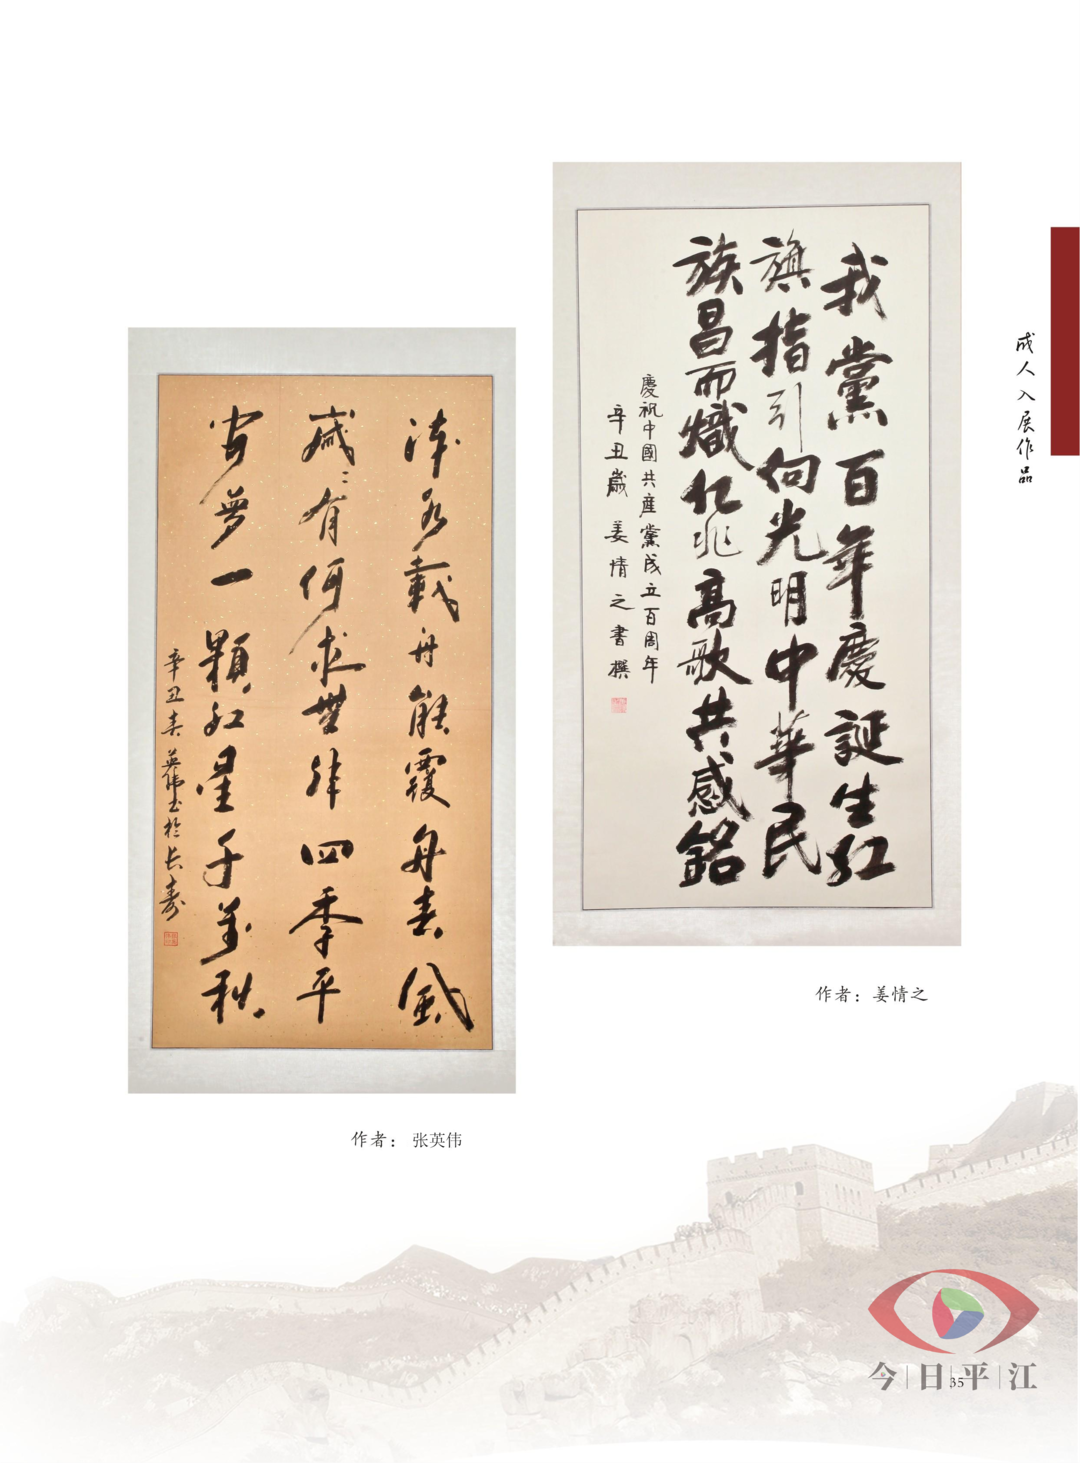 成人入展作品
我黨百年慶誕生紅
旗指引向光明中華民
族昌而熾亿兆高歌共感銘
慶祝中國共產黨成立百周年
辛丑歲 姜情之書撰
作者：姜情之
載舟能覆舟春風
有何求無四季平
安夢一顆紅星千萬秋
辛丑春英伟书於长寿
作者：张英伟
今日平江
35